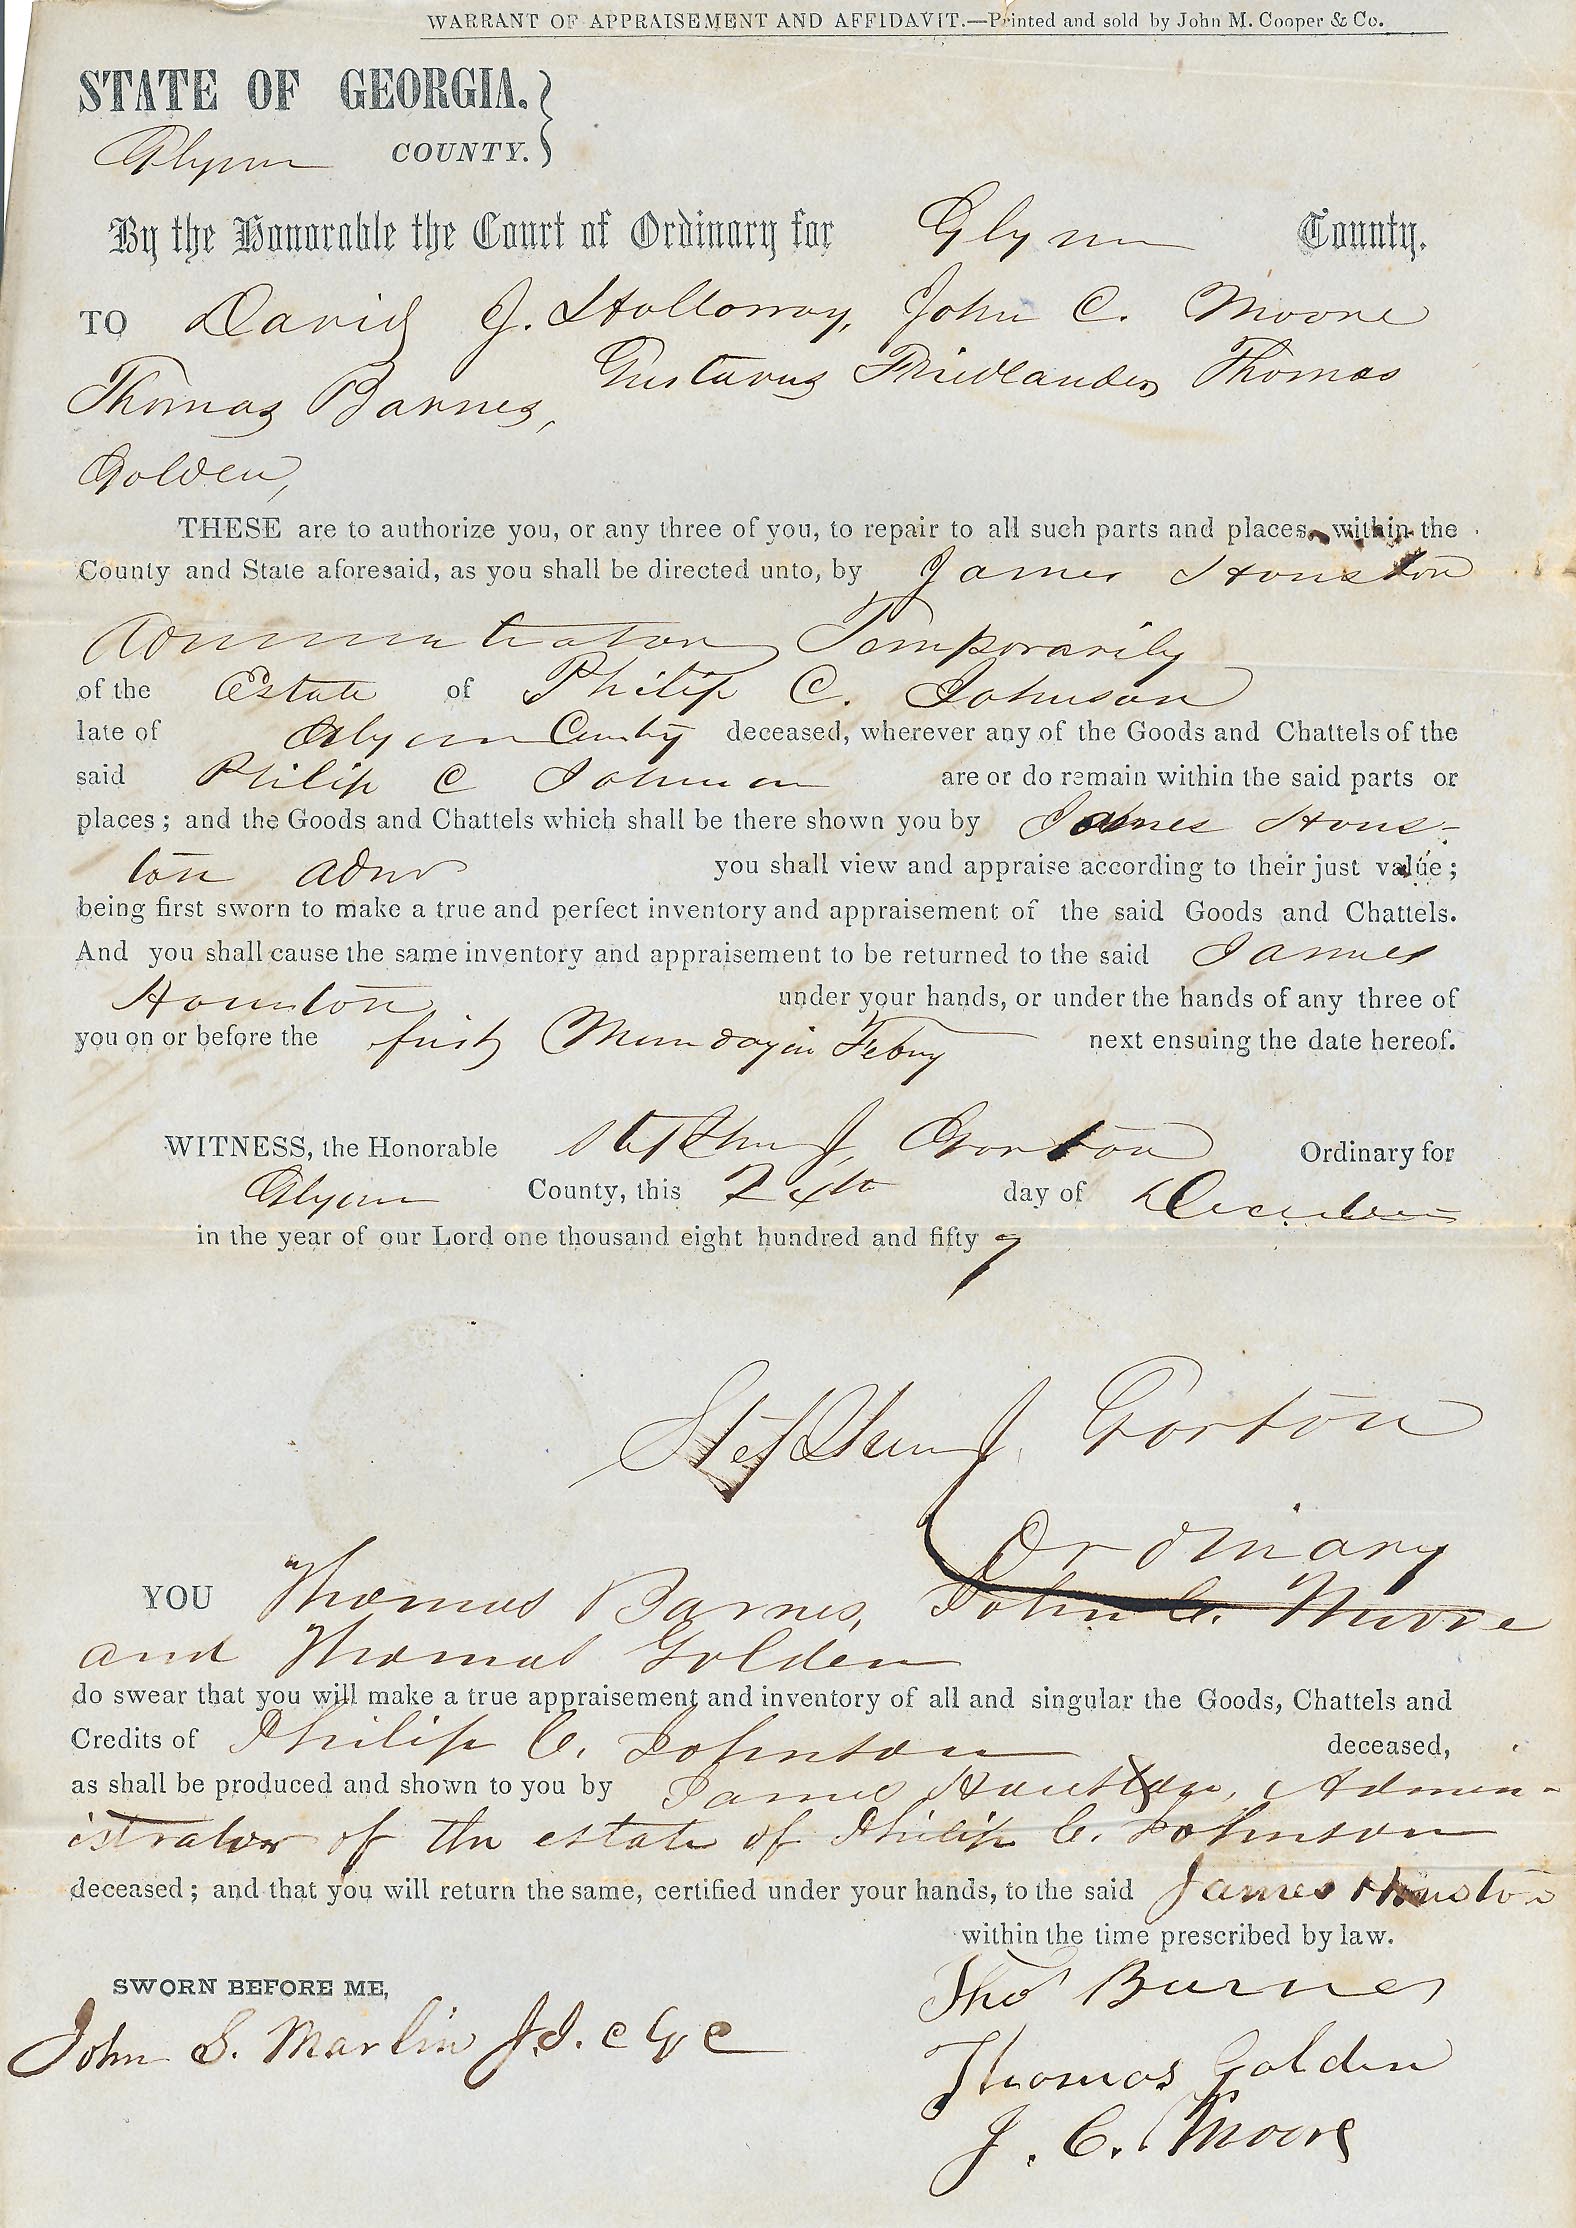 WARRANT OF APPRAISEMENT AND AFFIDAVIT.—Printed and sold by John M. Cooper & Co.
STATE OF GEORGIA.
Glynn COUNTY.
By the Honorable the Court of Ordinary for Glynn County.
TO David J. Holloway, John C. Moore
Thomas Barnes, Gustavus Friedlander, Thomas
Golden,
THESE are to authorize you, or any three of you, to repair to all such parts and places, within the
County and State aforesaid, as you shall be directed unto, by James Houston
Administrator Temporarily
of the Estate of Philip C. Johnson
late of Glynn County deceased, wherever any of the Goods and Chattels of the
said Philip C Johnson are or do remain within the said parts or
places; and the Goods and Chattels which shall be there shown you by James Hous-
ton admr you shall view and appraise according to their just value;
being first sworn to make a true and perfect inventory and appraisement of the said Goods and Chattels.
And you shall cause the same inventory and appraisement to be returned to the said James
Houston under your hands, or under the hands of any three of
you on or before the first Munday in Febuy next ensuing the date hereof.
WITNESS, the Honorable Stephen J. Gorton Ordinary for
Glynn County, this day of December
in the year of our Lord one thousand eight hundred and fifty 7
Stephen J. Gorton
Ordinary
YOU Thomas Barnes, John C. Moore
and Thomas Golden
do swear that you will make a true appraisement and inventory of all and singular the Goods, Chattels and
Credits of Philip C. Johnson deceased,
as shall be produced and shown to you by James Houston, Admin-
istrator of the estate of Philip C. Johnson
deceased; and that you will return the same, certified under your hands, to the said James Houston
within the time prescribed by law.
SWORN BEFORE ME, Thos Barnes
John S. Marlin J.I.C G C
Thomas Golden
J. C. Moore